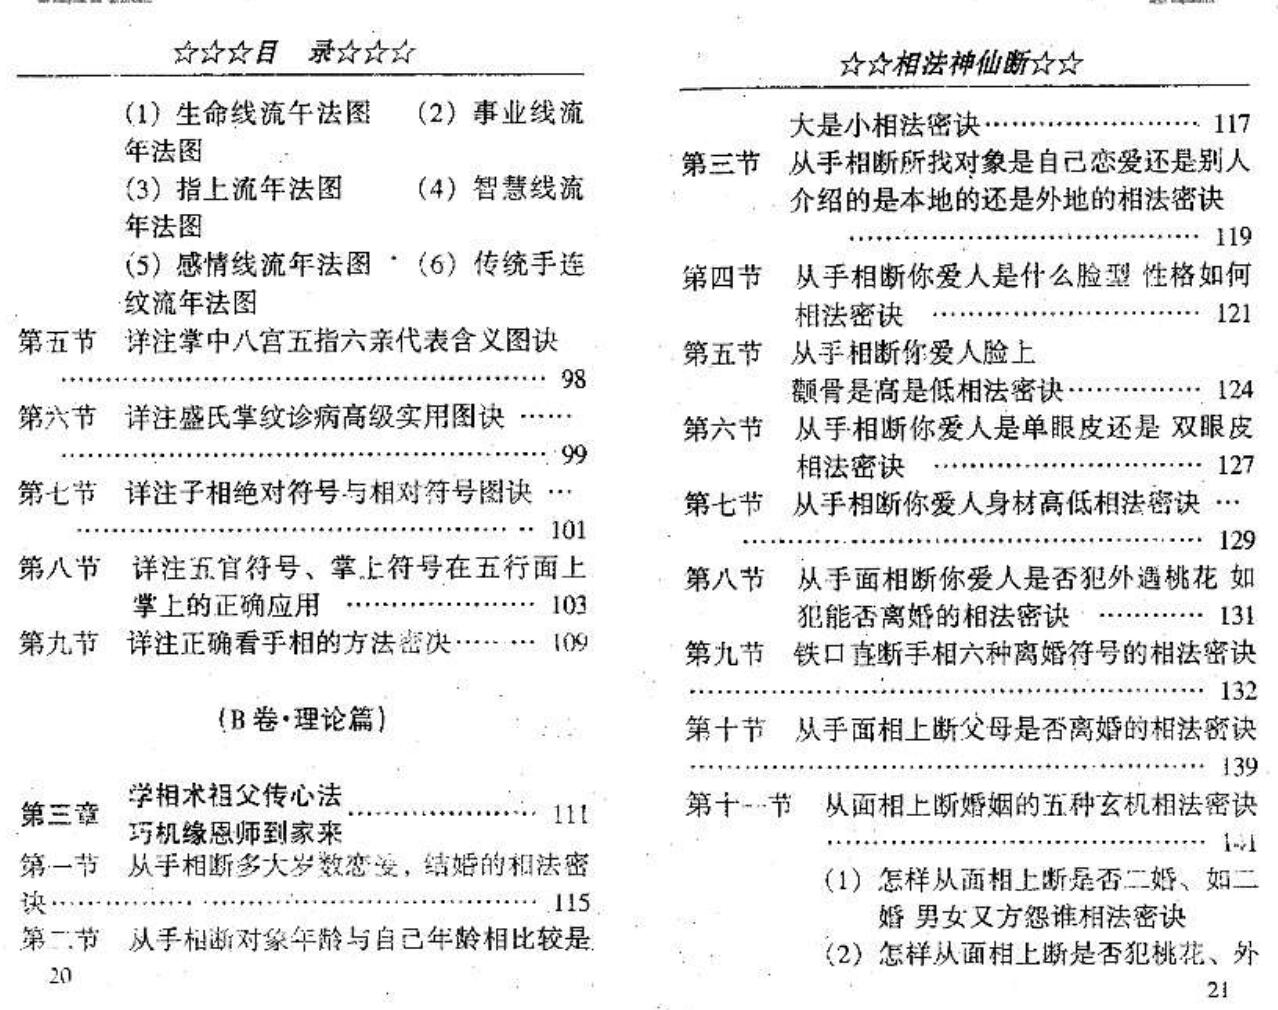 ☆☆☆目 录☆☆☆
(1) 生命线流午法图 (2) 事业线流
年法图
(3) 指上流年法图 (4) 智慧线流
年法图
(5) 感情线流年法图 (6) 传统手连
纹流年法图
第五节 详注掌中八宫五指六亲代表含义图诀
…… 98
第六节 详注盛氏掌纹诊病高级实用图诀 ……
…… 99
第七节 详注子相绝对符号与相对符号图诀 …
…… 101
第八节 详注五官符号、掌上符号在五行面上
掌上的正确应用 …… 103
第九节 详注正确看手相的方法密决…… 109
(B卷·理论篇)
第三章 学相术祖父传心法
巧机缘恩师到家来 …… 111
第一节 从手相断多大岁数恋爱，结婚的相法密
诀…… 115
第二节 从手相断对象年龄与自己年龄相比较是
20
☆☆相法神仙断☆☆
大是小相法密诀…… 117
第三节 从手相断所找对象是自己恋爱还是别人
介绍的是本地的还是外地的相法密诀
…… 119
第四节 从手相断你爱人是什么脸型 性格如何
相法密诀 …… 121
第五节 从手相断你爱人脸上
颧骨是高是低相法密诀…… 124
第六节 从手相断你爱人是单眼皮还是 双眼皮
相法密诀 …… 127
第七节 从手相断你爱人身材高低相法密诀 …
…… 129
第八节 从手面相断你爱人是否犯外遇桃花 如
犯能否离婚的相法密诀 …… 131
第九节 铁口直断手相六种离婚符号的相法密诀
…… 132
第十节 从手面相上断父母是否离婚的相法密诀
…… 139
第十一节 从面相上断婚姻的五种玄机相法密诀
…… 141
(1) 怎样从面相上断是否二婚、如二
婚 男女又方怨谁相法密诀
(2) 怎样从面相上断是否犯桃花、外
21